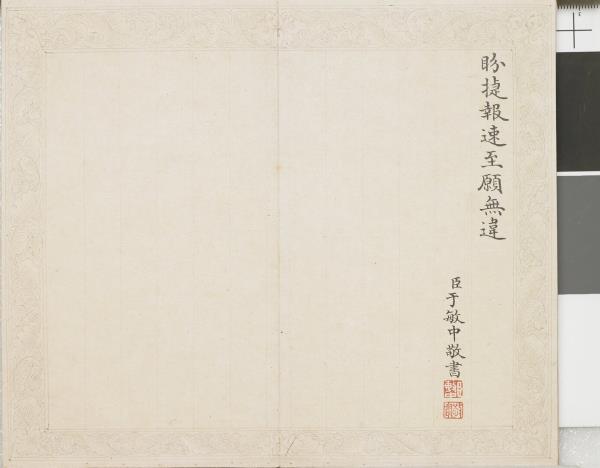 盼㨗報速至願無違
臣于敏中敬書